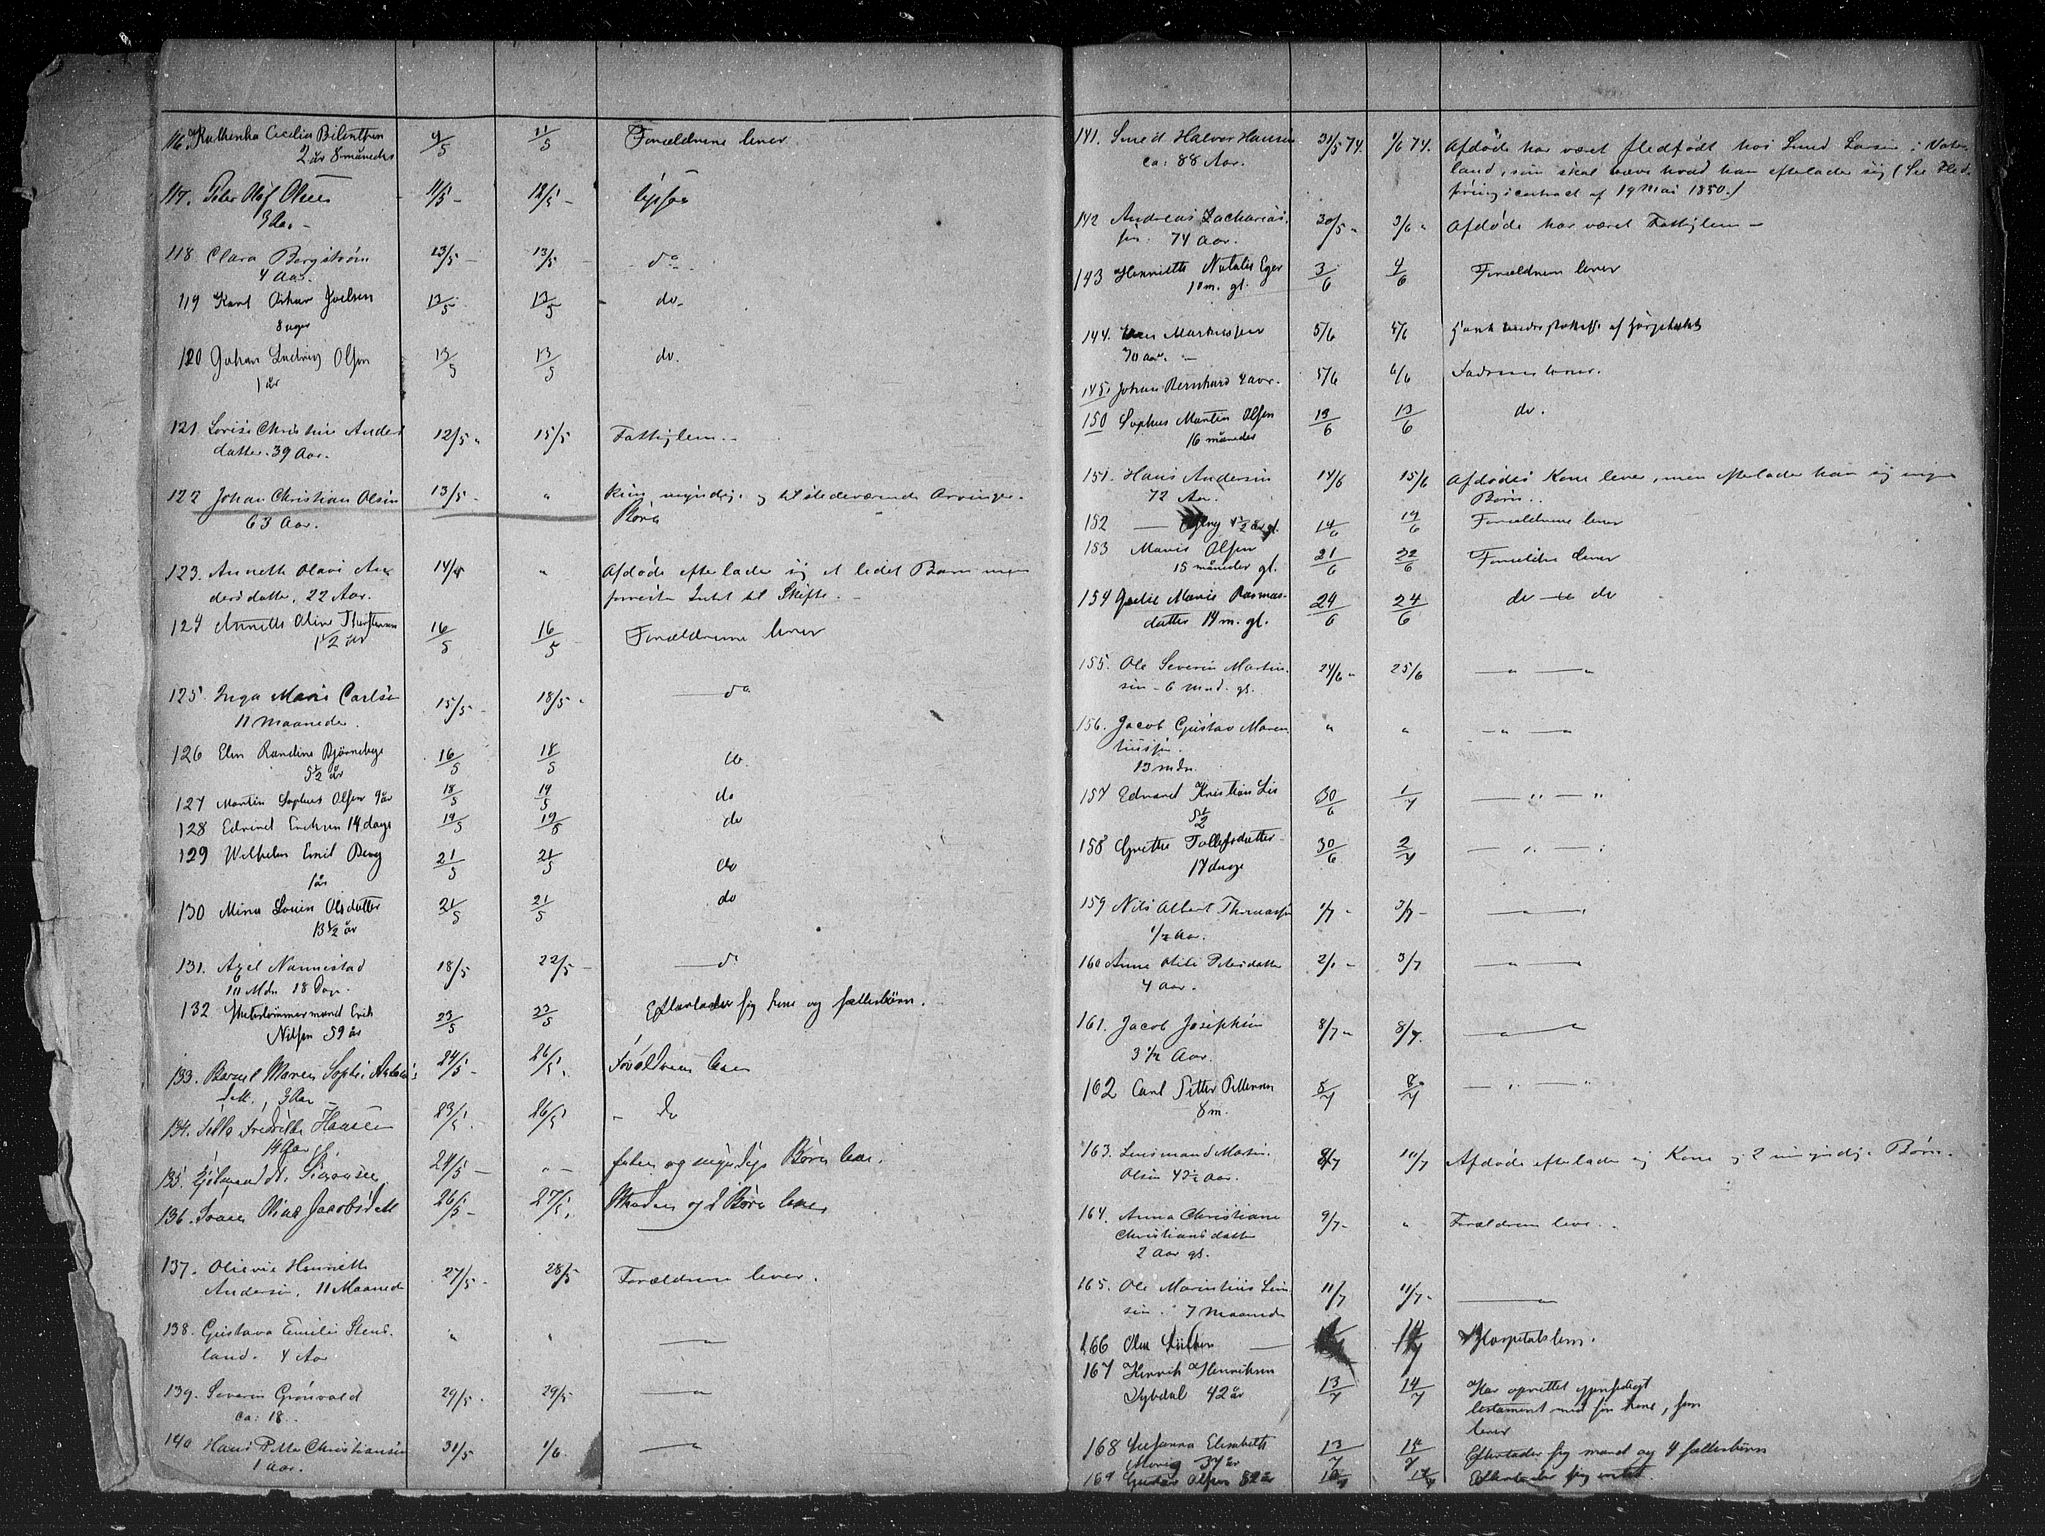 116. Cecilie
2 år 8 måneder 9/5 11/5 Forældrene lever.
117. Peter Olaf Olsen 11/5 - 12/5 -
3 Aar -
118. Clara Bergstrøm 13/5 - 13/5 - do -
4 Aar.
119 Karl Oskar Joelsen 13/5 13/5 do -
8 uger
120 Johan Ludvig Olsen 13/5 13/5 do.
1 år
121. Lovise Christine Anders
datter. 39 Aar. 12/5 " 15/5 Fattiglem. -
122 Johan Christian Olsen 13/5 - " Kun myndige og tilstedeværende Arvinger.
63 Aar. Børn
123. Anneth Olava An 14/5 " Afdøde efterlader sig et lidet Barn men
dersdatter, 22 Aar. forøvrigt Intet til Skifte. -
124 Annette Oline
1 1/2 år 16/5 16/5 Forældrene lever
125. Inga Marie Carlsen 15/5 - 18/5 - — do
11 Maaneder.
126 Elen Randine Bjørneby 16/5 18/5 do.
5 1/2 år
127 Martin Sophus Olsen 9 år 18/5 19/5 do
128 Edvind Eriksen 14 dage 19/5 19/5 do
129 Wilhelm Emil Berg 21/5 21/5 do
1 år
130 Mina Lovise Olsdatter 21/5 21/5 do
13 1/2 år
131. Axel Nannestad 18/5 22/5 - — do
10 Mdr 18 Dage
132 Skibstømmermand Erik 23/5 23/5 Efterlader sig kone og fællesbørn.
Nilsen 59 år
133. Maren Sophie 24/5 - 26/5 . Forældrene lever
dtr. 3 Aar -
134. Fredrikke Hansen 23/5 26/5 - do
14 Aar
135. Simonsen 24/5 - " - og myndige Børn lever.
136. Oline Jacobsdatt 26/5 - 27/5 . Manden og 2 Børn lever
137. Olivie Henriette 27/5 - 28/5 Forældrene lever.
Andersen, 11 Maaneder
138. Gustava Emilie Stens " " — "
land. 4 Aar
139. Severin Grønvold 29/5 . 29/5 — "
ca: 18.
140. Hans Petter Christiansen 31/5 1/6. — "
1 Aar.
141. Smed Halvor Hansen 31/5 74. 1/6 74. Afdøde har været fledfødt hos Smed Larsen i Vater
ca: 88 Aar. land, som skal hæve hvad han efterlader sig (See Fled
føringscontract af 19 Mai 1850.)
142 Andreas Zacharias 30/5 " 3/6 " Afdøde har været Fattiglem -
sen. 74 Aar.
143 Henriette Natalie Eger 3/6 4/6 Forældrene lever
10 m. gl.
144. Markussen 5/6 5/6
70 aar. -
145. Johan Bernhard 4 aar. 5/6 6/6 Faderen lever.
150 Sophus Martin Olsen 13/6 13/6 do.
16 måneder
151. Hans Andersen 14/6 15/6 Afdødes Kone lever, men efterlader han sig ingen
72 Aar. Børn.
152 — 14/6 19/6 Forældrene lever
153 Marie Olsen 21/6 22/6 Forældre lever
15 måneder gl.
154 Marie Rasmus- 24/6 24/6 do — do
datter 14 m. gl.
155. Ole Severin Martin 24/6 " 25/6 — " — "
sen - 6 mnd. gl.
156. Jacob Gustav Maren " " — " — "
tiussen.
13 mdr.
157 Edvard Kristian Lie 30/6 1/7 — " — "
5 1/2
158 Grethe Tollefsdatter 30/6 2/7 — " — "
17 dage
159 Nils Albert Thomassen 1/7 - 3/7 - — " — "
1/2 Aar.
160 Anne Petersdatter 2/7 - 3/7 — " — "
4 Aar.
161. Jacob Josephsen 8/7 " 8/7. — " — "
3 1/2 Aar.
162 Carl Petter Pettersen 8/7 8/7 — " — "
8 m.
163. Lensmand Martin 8/7 10/7 Afdøde efterlader sig Kone og 2 umyndige Børn.
Olsen 43 1/2 Aar.
164. Anna Christiane 9/7 - " Forældrene leve. .
Christiansdatter
2 Aar gl.
165. Ole Marentius 11/7 11/7 " — "
sen. 7 Maaneder
166 — Hospitalslem.
167 Henrik Henriksen
42 år 13/7 14/7 Har oprettet gjensidigt
testament med sin kone, som
lever
168 Susanna Elisabeth 13/7 15/7 Efterlader sig mand og 4 fællesbørn
37 år
169 Gustav Olsen Efterlader sig intet.